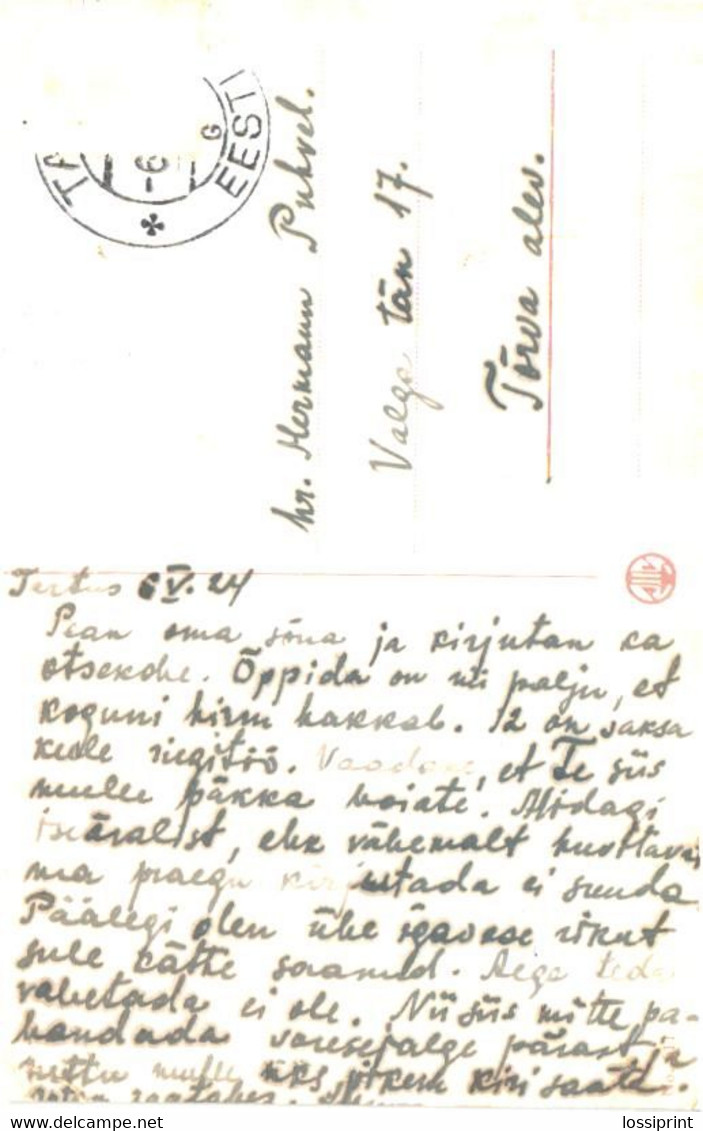 EESTI
hr. Hermann Puhvel.
Valga tän 17.
Tõrva alev.
Tartus 6 V. 24
Pean oma sõna ja kirjutan ka
otsekohe. Õppida on nii palju, et
koguni hirm hakkab. 12 on saksa
keele riigitöö. Vaadake, et Te siis
mulle päkka hoiate. Midagi
iseäralist, ehk vähemalt huvitava,
ma praegu kirjutada ei suuda
Päälegi olen ühe igavese rikut
sule kätte saanud. Aega teda
vahetada ei ole. Nii siis mitte pa-
handada varesejalge pärast ja
ruttu mulle üks pikem kiri saata.
lossiprint